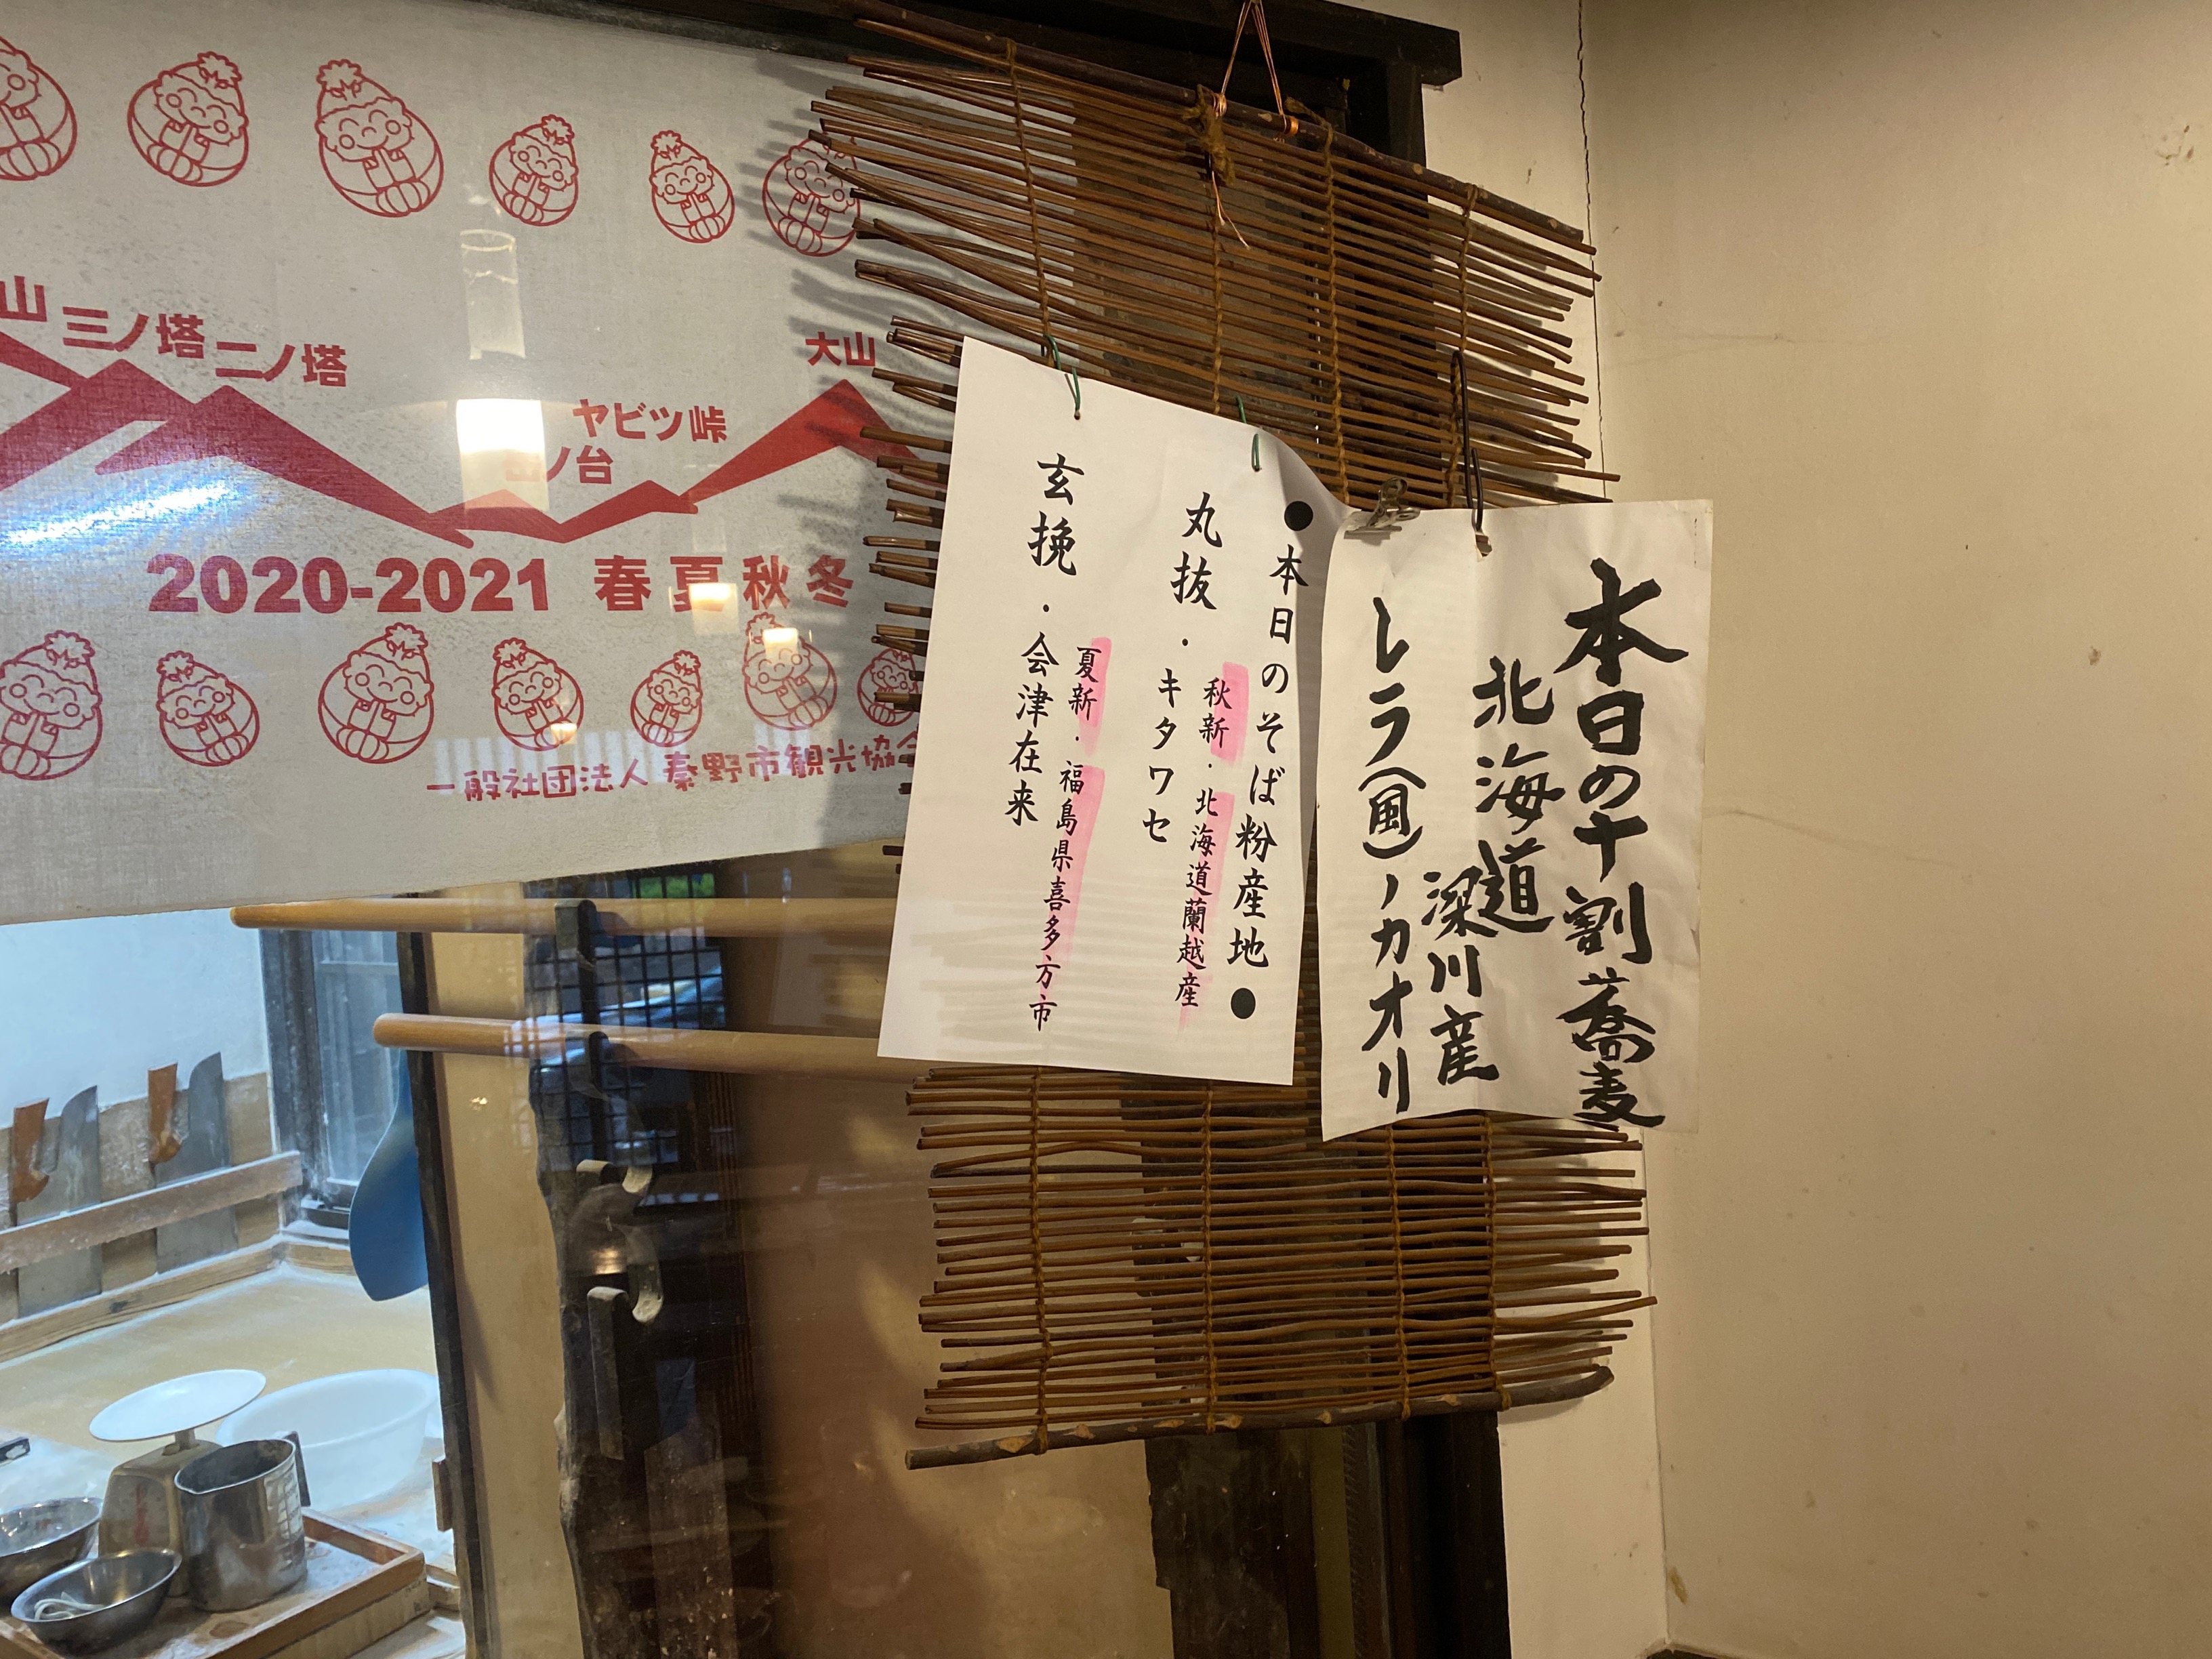 山
三ノ塔
二ノ塔
大山
ヤビツ峠
ノ台
2020-2021 春夏秋冬
一般社団法人 秦野市観光協会
●本日のそば粉産地●
秋新・北海道蘭越産
丸抜・キタワセ
夏新・福島県喜多方市
玄挽・会津在来
本日の十割蕎麦
北海道
深川産
レラ(風)ノカオリ